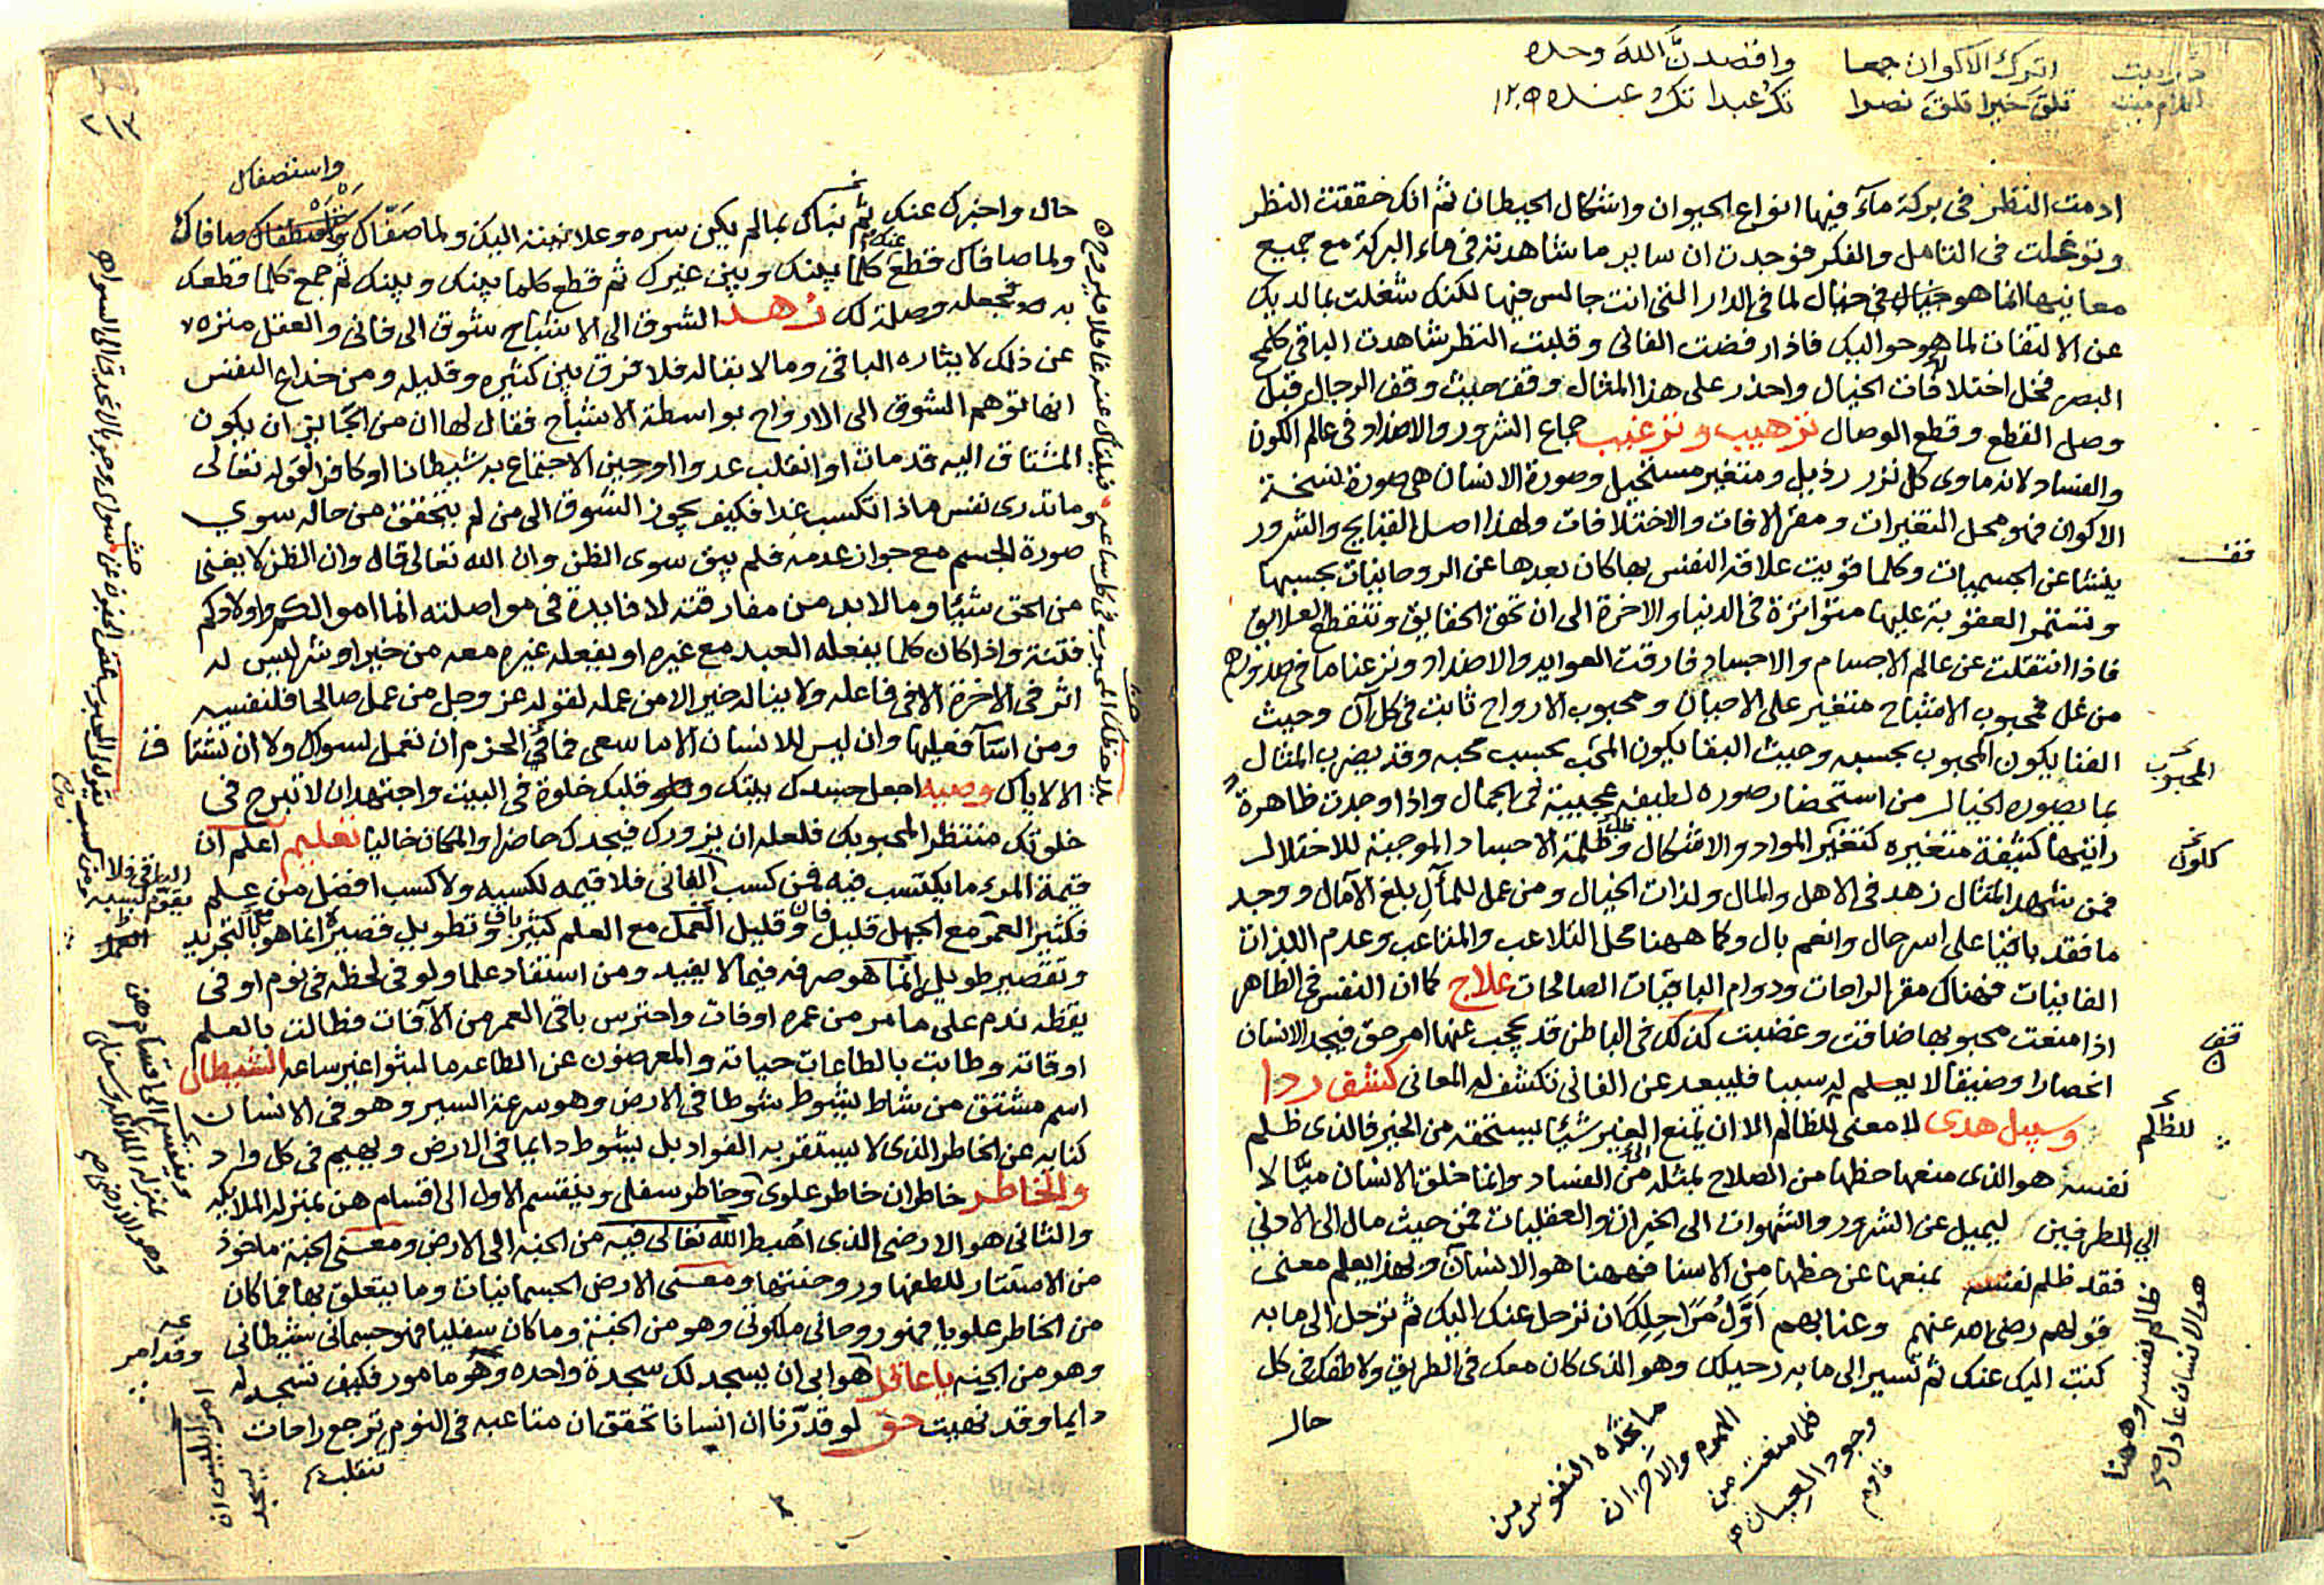 اترك الاكوان جمعا واقصدنّ الله وحده
تلق خيرا تلق نصرا تك عبدا تك عنده ١٢٠٥
ادمت النظر في بركة مآء فيها انواع الحيوان واشكال الحيطان ثم انك حققت النظر
وتوغلت في التامل والفكر فوجدت ان ساير ما شاهدته في ماء البركة مع جميع
معانيها انما هو خيال في خيال لما في الدار التي انت جالس فيها لكنك شغلت بما لديك
عن الالتفات لما هو حواليك فاذا رفضت الفاني وقلبت النظر شاهدت الباقي كلمح
البصر فخل اختلافات الخيال واحذر على هذا المثال وقف حيث وقف الرجال فقبل
وصل القطع وقطع الوصال ترهيب وترغيب جماع الشرور والاضداد في عالم الكون
والفساد لانه ماوى كل نزر رذيل ومتغير مستحيل وصورة الانسان هي صورة نسخة
الاكوان فهو محل التغيرات ومقر الافات والاختلافات ولهذا اصل القبايح والشرور
ينشا عن الجسميات وكلما قويت علاقة النفس بها كان بعدها عن الروحانيات بحسبها
وتستمر العقوبة عليها متواترة في الدنيا والاخرة الى ان تحق الحقايق وتنقطع العلايق
فاذا انتقلت عن عالم الاجسام والاجساد فارقت العوايد والاضداد ونزعنا ما في صدورهم
من غل فمحبوب الاشباح متغير على الاحيان ومحبوب الارواح ثابت في كل آن وحيث
الفنا يكون المحبوب بحسبه وحيث البقا يكون المحب بحسب محبه وقد يضرب المثال
بما يصوره الخيال من استحضار صوره لطيفه عجيبة في الجمال واذا وجدت ظاهرة
رايتها كثيفة متغيره كتغير المواد والاشكال وظلمة الاجساد الموجبة للاختلال
فمن شهد المثال زهد في الاهل والمال ولذات الخيال ومن عمل للمآل بلغ الآمال ووجد
ما فقد باقيا على اسر حال وانعم بال وكما ههنا محل التلاعب والمتاعب وعدم اللذات
الفانيات فهناك مقر الراحات ودوام الباقيات الصالحات علاج كما ان النفس في الظاهر
اذا منعت محبوبها ضاقت وغضبت كذلك في الباطن قد يحجب عنها امر حق فيجد الانسان
انحصارا وضيقا لا يعلم له سببا فليبعد عن الفاني تكشف له المعاني كشف ردا
وسبيل هدى لا معنى للظالم الا ان يمنع الغير شيئا يستحقه من الخير فالذي ظلم
نفسه هو الذي منعها حظها من الصلاح بمثله من الفساد وانما خلق الانسان ميّالا
الي الطرفين ليميل عن الشرور والشهوات الى الخيرات والعقليات فمن حيث مال الى الادني
فقد ظلم نفسه بمنعها عن حظها من الاسنا فههنا هو الانسان وبهذا يعلم معنى
قولهم رضي الله عنهم وعنا بهم اوّل مراحلك ان ترحل عنك اليك ثم ترحل الى ما به
كنت اليك عنك ثم تسير الى ما به رحيلك وهو الذي كان معك في الطريق ولاطفك في كل
حال
قف
المحبوب
كلون
قف
للظلم
هو الانسان عادل
ظالم لنفسه وههنا
ما تجده النفوس من
الهموم والاحزان
فلما منعت من
وجود العيان
فافهم
٢١٣
واستصفاك
حال واخبرك عنك ثم نباك بما لم يكن سره وعلانيته اليك ولما صفّاك صافاك
ولما صافاك قطع كلما بينك وبين غيرك ثم قطع كلما بينك وبينك ثم جمع كلما قطعك
به فجعله وصلة لك زهد الشوق الى الاشباح شوق الى فاني والعقل منزه
عن ذلك لايثاره الباقي وما لا بقا له فلا فرق بين كثيره وقليله ومن خداع النفس
انها توهم الشوق الى الارواح بواسطة الاشباح فقال لها ان من الجايز ان يكون
المشتاق اليه قد مات او انقلب عدوا او حين الاجتماع به شيطانا او كافرا لقوله تعالى
وما تدري نفس ماذا تكسب غدا فكيف يجوز الشوق الى من لم يتحقق من حاله سوي
صورة الجسم مع جواز عدمه فلم يبق سوى الظن وان الله تعالى قال وان الظن لا يغني
من الحق شيئا وما لا بد من مفارقته لا فايدة في مواصلته انما اموالكم واولادكم
فتنة واذا كان كلما يفعله العبد مع غيره او يفعله غيره معه من خير او شر ليس له
اثر في الاخرة الا في فاعله ولا يناله خير الا من عمله لقوله عز وجل من عمل صالحا فلنفسه
ومن اسآ فعليها وان ليس للانسان الا ما سعى فما في الحزم ان تعمل لسواك ولا ان تشتاق
الا لاياك وصيه اجعل جسدك بيتك وقلبك خلوة في البيت واجتهد ان لا تبرح في
خلوتك منتظرا لمحبوبك فلعله ان يزورك فيجدك حاضرا والمكان خاليا تعليم اعلم ان
قيمة المرء ما يكتسب فيه فمن كسب الفاني فلا قيمه لكسبه ولا كسب افضل من علم
فكثير العمر مع الجهل قليل فان وقليل العمل مع العلم كثير باق وتطويل قصيره انما هو بالتجريد
وتقصير طويل انما هو صرفه فيما لا يفيد ومن استفاد علما ولو في لحظه في نوم او في
يقظه ندم على ما مر من عمره اوفات واحترس باقي العمر من الآفات فطالت بالعلم
اوقاته وطابت بالطاعات حياته والمعرضون عن الطاعه ما لبثوا غير ساعه الشيطان
اسم مشتق من شاط يشوط شوطا في الارض وهو سرعة السير وهو في الانسان
كنايه عن الخاطر الذي لا يستقر به الفواد بل يشوط دايما في الارض ويهيم في كل واد
والخاطر خاطران خاطر علوى وخاطر سفلى وينقسم الاول الى اقسام هن بمنزله الملايكه
والثاني هو الارضي الذي اهبط الله تعالى فيه من الجنه الى الارض ومعنى الجنة ماخوذ
من الاستتار للطفها وروحنتها ومعنى الارض الجسمانيات وما يتعلق بها فما كان
من الخاطر علويا فهو روحاني ملكوتي وهو من الجنة وما كان سفليا فهو جسماني شيطاني
وهو من الجنه يا غافل هو ابى ان يسجد لك سجدة واحده وهو مامور فكيف تسجد له
دايما وقد نهيت حق لو قدّرنا ان انسانا تحقق ان متاعبه في النوم ترجع راحات
تنقلب
الباقي فلا
وقد امر